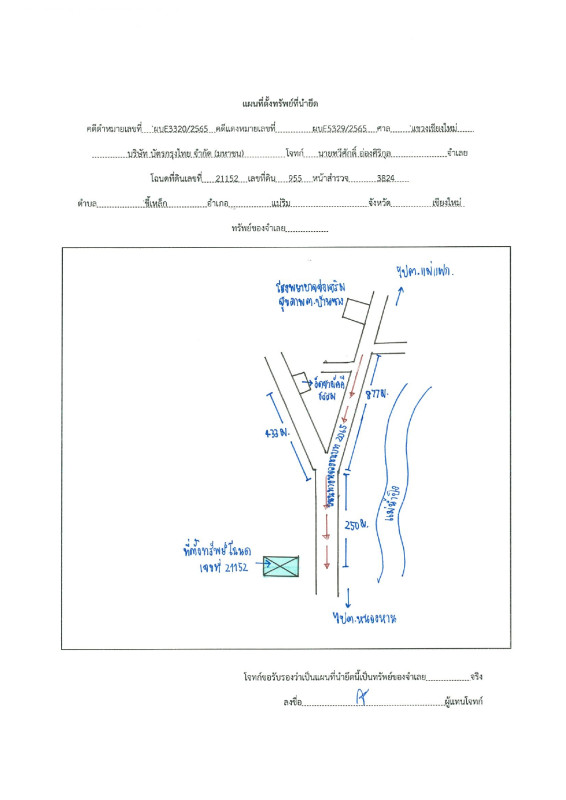 แผนที่ตั้งทรัพย์ที่นำยึด
คดีดำหมายเลขที่ 'ผบE3320/2565 คดีแดงหมายเลขที่ ผบE5329/2565 ศาล 'แขวงเชียงใหม่
บริษัท บัตรกรุงไทย จำกัด (มหาชน) โจทก์ นายทวีศักดิ์ อ่องศิริกุล จำเลย
โฉนดที่ดินเลขที่ 21152 เลขที่ดิน 955 หน้าสำรวจ 3824
ตำบล 'ขี้เหล็ก อำเภอ แม่ริม จังหวัด เชียงใหม่
ทรัพย์ของจำเลย
ไปต.แม่แฝก.
โรงพยาบาลส่งเสริม
สุขภาพต.บ้าน
877ม.
433 ม.
2065
แม่น้ำปิง
250ม.
ที่ตั้งทรัพย์โฉนด
เลขที่ 21152
ไปต.หนองหาร
โจทก์ขอรับรองว่าเป็นแผนที่นำยึดนี้เป็นทรัพย์ของจำเลย จริง
ลงชื่อ ผู้แทนโจทก์